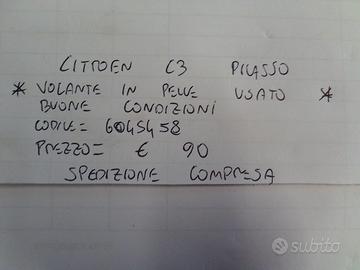 CITROEN C3 PICASSO
* VOLANTE IN PELLE USATO *
BUONE CONDIZIONI
CODICE = 6045458
PREZZO = € 90
SPEDIZIONE COMPRESA
subito